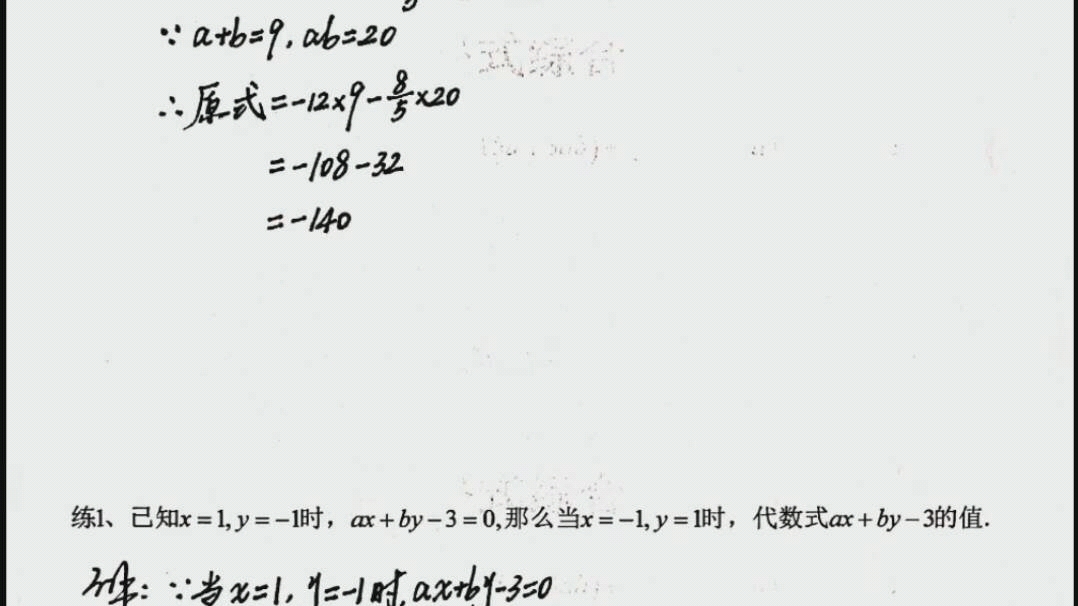 ∵ a+b=9, ab=20
∴ 原式=-12×9-8/5×20
=-108-32
=-140
练1、已知x=1,y=-1时，ax+by-3=0,那么当x=-1,y=1时，代数式ax+by-3的值.
解: ∵当x=1, y=-1时,ax+by-3=0